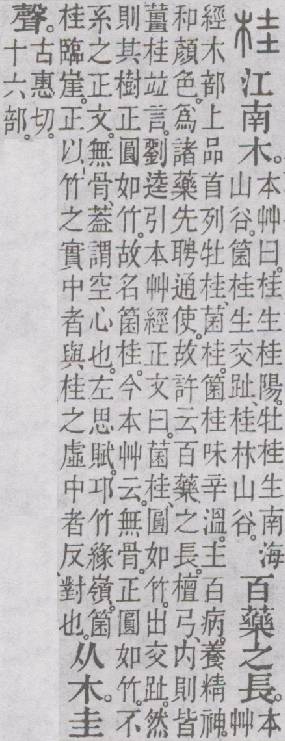 桂江南木。本艸曰。桂生桂陽。牡桂生南海
山谷。箘桂生交趾、桂林山谷。百藥之長。本
艸
經木部上品首列牡桂、菌桂。箘桂味辛溫。主百病。養精神。
和顏色。爲諸藥先聘通使。故許云百藥之長。檀弓、內則皆
薑桂竝言。劉逵引本艸經正文曰。菌桂、圓如竹。出交趾。然
則其樹正圓如竹。故名箘桂。今本艸云。無骨。正圓如竹。不
系之正文。無骨葢謂空心也。左思賦。邛竹緣嶺。箘
桂臨崖。正以竹之實中者與桂之虛中者反對也。从木。圭
聲。古惠切。
十六部。